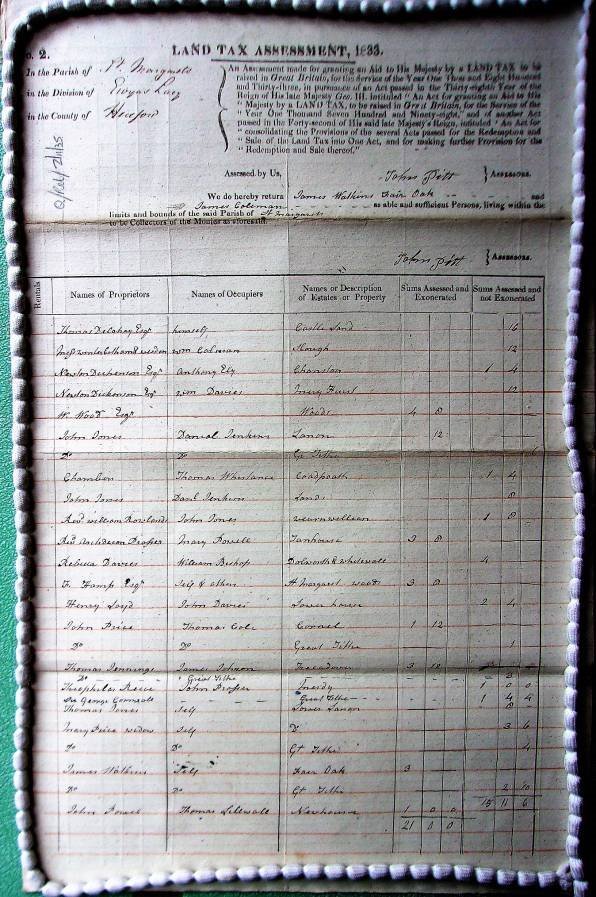 o. 2.
LAND TAX ASSESSMENT, 1833.
In the Parish of St. Margarets
in the Division of Ewyas Lacy
in the County of Hereford
An Assessment made for granting an Aid to His Majesty by a LAND TAX to be
raised in Great Britain, for the Service of the Year One Thousand Eight Hundred
and Thirty-three, in pursuance of an Act passed in the Thirty-eighth Year of the
Reign of His late Majesty Geo. III. intituled "An Act for granting an Aid to His
"Majesty by a LAND TAX, to be raised in Great Britain, for the Service of the
"Year One Thousand Seven Hundred and Ninety-eight," and of another Act
passed in the Forty-second of His said late Majesty's Reign, intituled "An Act for
"consolidating the Provisions of the several Acts passed for the Redemption and
"Sale of the Land Tax into One Act, and for making further Provision for the
"Redemption and Sale thereof."
Assessed by Us, John Pitt Assessors.
We do hereby return James Watkins Fair Oak and
James Coleman as able and sufficient Persons, living within the
limits and bounds of the said Parish of St Margarets
to be Collectors of the Monies as aforesaid.
John Pitt Assessors.
Rentals Names of Proprietors Names of Occupiers Names or Description of Estates or Property Sums Assessed and Exonerated Sums Assessed and not Exonerated
Thomas Delahay Esqr himself Castle Land 16
Wm Colman Slough 12
Newton Dickenson Esqr Anthony Chanston 1 4
Newton Dickenson Esqr Wm Davies 12
W. Wood Esqr Woods 4 8
John Jones Daniel Jenkins Lanon 12
Do Do Gt Tithe
Chambers Thomas 1 4
John Jones Danl Jenkins Lands 8
Revd William Rowlands John Jones 1 8
Revd Archdeacon Prosser Mary Powell Tanhouse 3 8
Rebecca Davies William Bishop 4
F. Hamp Esqr Self & others St Margaret woods 3 8
Henry Loyd John Davies Lower house 2 4
John Price Thomas Cole Cornel 1 12
Do Do Great Tithe 1
Thomas Jennings James Johnson 3 12
Do Great Tithe
Theophilus John Prosser 1 0 0
Sir George Cornewall Great Tithe 1 4 4
Thomas Jones Self Lower Lanon 8
Mary Price widow Self Do 3 6
Do Do Gt Tithe 4
James Watkins Self Fair Oak 3
Do Do Gt Tithe 2 10
15 11 6
John Powell Thomas Newhouse 1 0 0
21 8 0